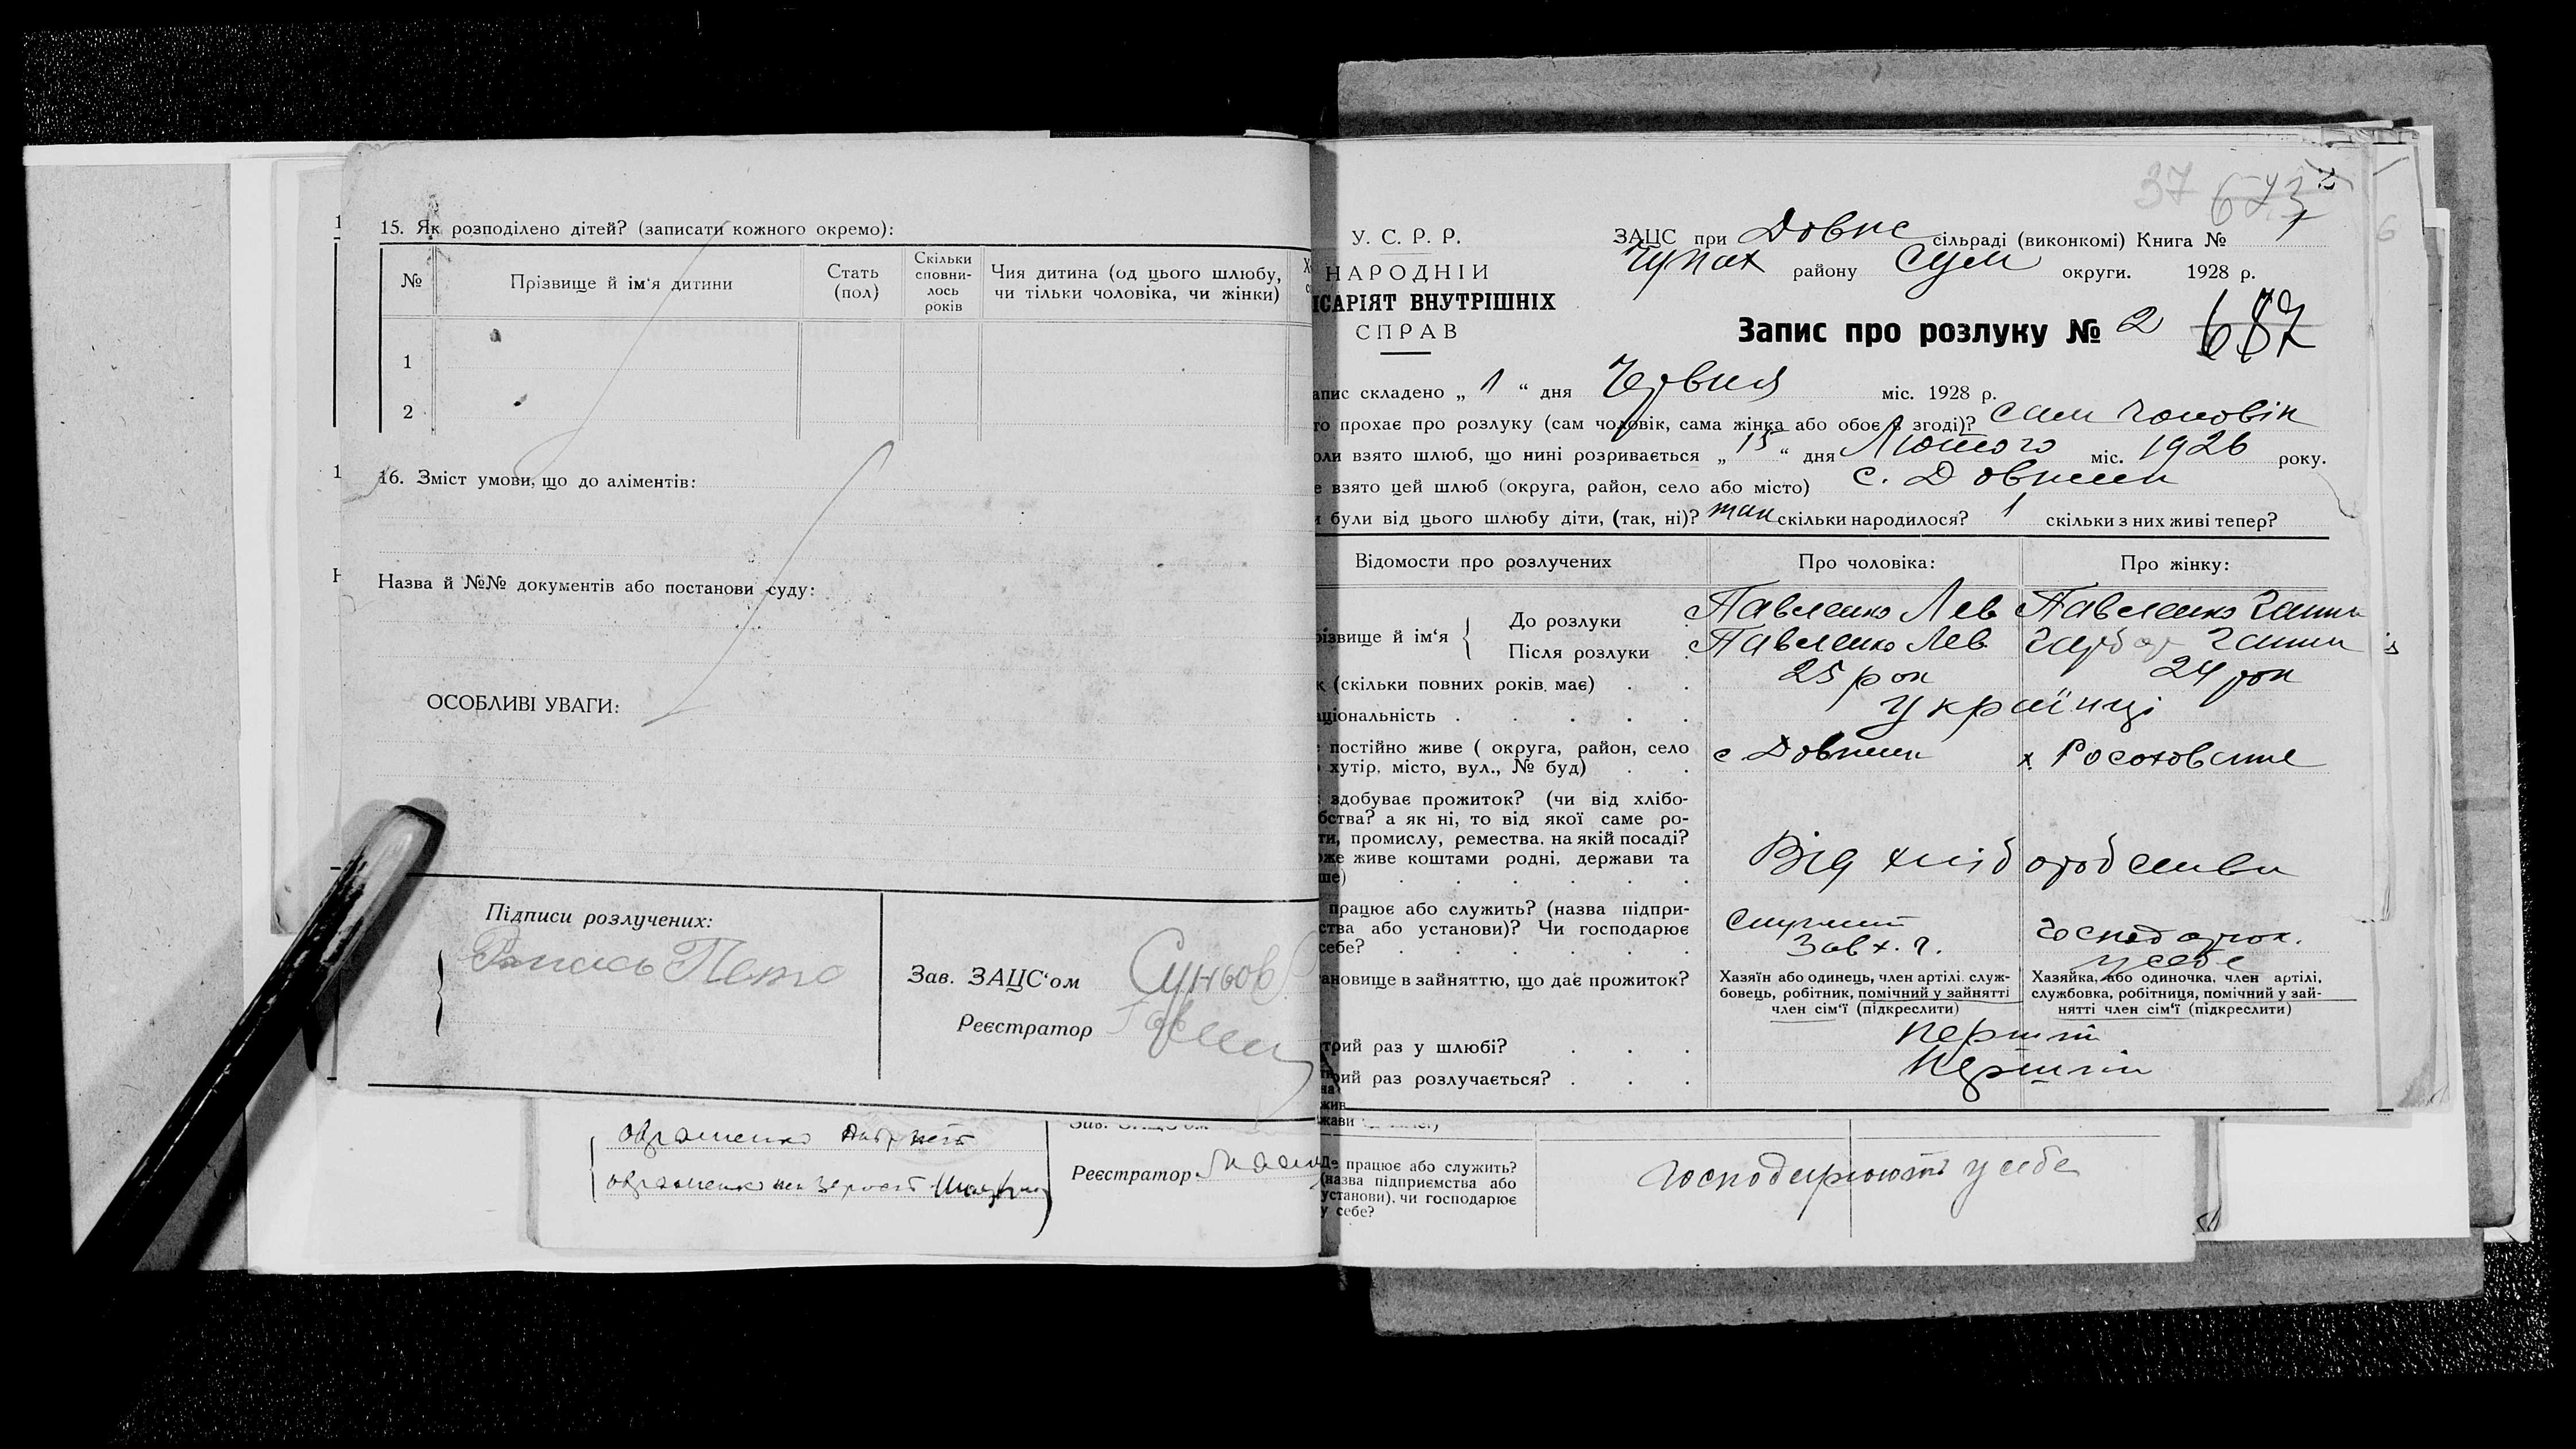 15. Як розподілено дітей? (записати кожного окремо):
№
Прізвище й ім‘я дитини
Стать (пол)
Скільки сповни- лось років
Чия дитина (од цього шлюбу, чи тільки чоловіка, чи жінки)
1
2
16. Зміст умови, що до аліментів:
Назва й №№ документів або постанови суду:
ОСОБЛИВІ УВАГИ:
Підписи розлучених:
Зав. ЗАЦС‘ом
Реєстратор
Реєстратор
37
У. С. Р. Р.
НАРОДНІЙ
ІСАРІЯТ ВНУТРІШНІХ
СПРАВ
ЗАЦС при Довжс сільраді (виконкомі) Книга № 1
Чупах району Сум округи. 1928 р.
Запис про розлуку № 2 687
апис складено „ 1 “ дня Червня міс. 1928 р.
то прохає про розлуку (сам чоловік, сама жінка або обоє в згоді)? сам чоловік
оли взято шлюб, що нині розривається „ 15 “ дня Лютого міс. 1926 року.
е взято цей шлюб (округа, район, село або місто) с. Довжик
и були від цього шлюбу діти, (так, ні)? так скільки народилося? 1 скільки з них живі тепер?
Відомости про розлучених
Про чоловіка:
Про жінку:
різвище й ім‘я
До розлуки Павленко Лев Павленко Ганни
Після розлуки Павленко Лев Ганни
к (скільки повних років має) 25 рок 24 рок
аціональність Українці
е постійно живе ( округа, район, село
о хутір, місто, вул., № буд) с Довжик х.
здобуває прожиток? (чи від хлібо-
бства? а як ні, то від якої саме ро-
ти, промислу, ремества. на якій посаді?
оже живе коштами родні, держави та
ше) Від хліборобства
працює або служить? (назва підпри-
ства або установи)? Чи господарює
себе?
Господарює.
у себе
ановище в зайняттю, що дає прожиток?
Хазяїн або одинець, член артілі. служ-
бовець, робітник, помічний у зайнятті
член сім‘ї (підкреслити)
Хазяйка, або одиночка, член артілі,
службовка, робітниця, помічний у зай-
нятті член сім‘ї (підкреслити)
трий раз у шлюбі? перший
рий раз розлучається? перший
Де працює або служить?
(назва підприємства або
установи), чи господарює
у себе?
Господарюють у себе